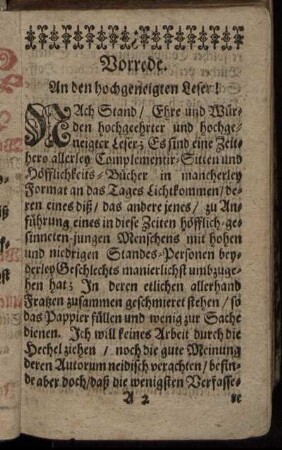 Vorrede.
An den hochgeneigten Leser!
NAch Stand / Ehre und Wür-
den hochgeehrter und hochge-
neigter Leser; Es sind eine Zeit-
hero allerley Complementir-Sitten und
Höfflichkeits-Bücher in mancherley
Format an das Tages Licht kommen / de-
ren eines diß / das andere jenes / zu An-
führung eines in diese Zeiten höfflich-ge-
sinneten-jungen Menschens mit hohen
und niedrigen Standes-Personen bey-
derley Geschlechts manierlichst umbzuge-
hen hat; In deren etlichen allerhand
Fratzen zusammen geschmieret stehen / so
das Pappier füllen und wenig zur Sache
dienen. Ich will keines Arbeit durch die
Hechel ziehen / noch die gute Meinung
deren Autorum neidisch verachten / befin-
de aber doch / daß die wenigsten Verfasse-
A 2 re